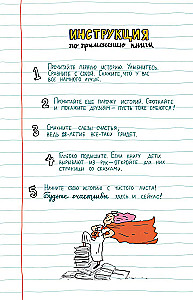 ИНСТРУКЦИЯ
по применению книги
1 Прочитайте первую историю. Улыбнитесь.
Сравните с собой. Скажите, что у вас
все намного лучше.
2 Прочитайте еще парочку историй. Сфоткайте
и покажите друзьям – пусть тоже смеются!
3 Смахните слезы счастья,
ведь до-летие все-таки придет.
4 Глубоко подышите. Если книгу дети
вырывают из рук – откройте для них
страницы со сказами.
5 Начните свою историю с чистого листа!
Будьте счастливы здесь и сейчас!